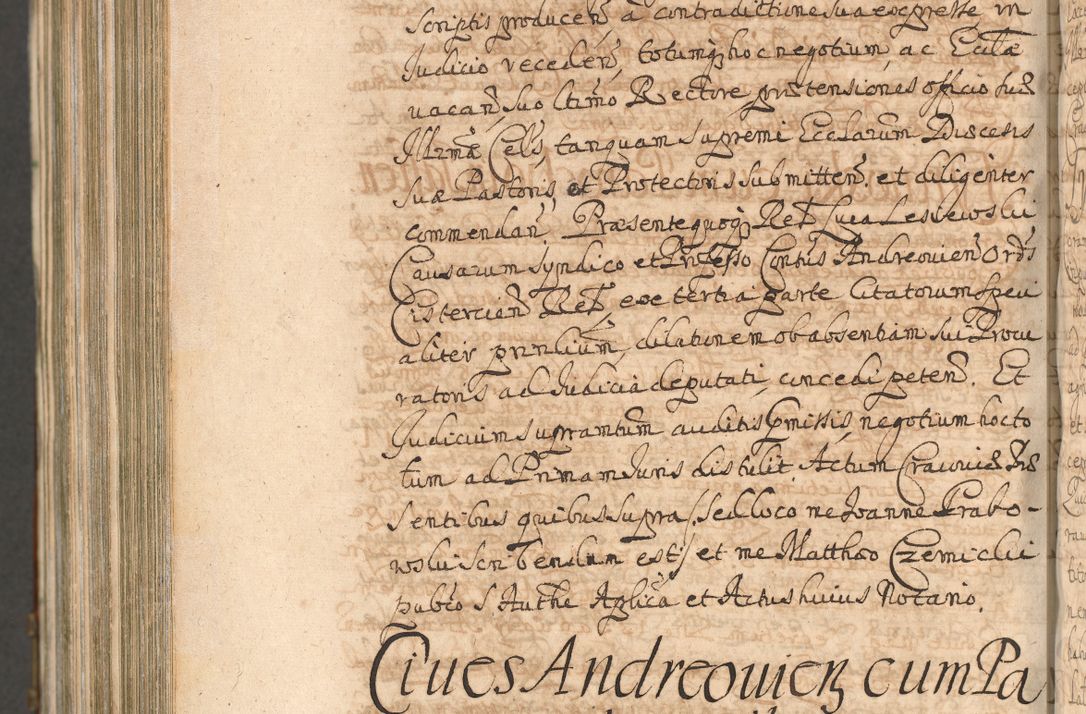 scriptis producen̄ a contradictione sua expresse, in
Judicio receden̄, totumq̨ hoc negotium, ac Eccłæ
vacan̄, suo ltimo Rectore prætensiones officio suæ
Illrmæ Celsis, tanquam supremi Ecclarum Diœcesis
suæ Pastoris, et Protectoris submitten̄. et diligenter
commendan̄. Præsente quoq̨ Reŭ Luca Leslewolski
Causarum syndico et Professo Contus Andreouien̄ Ordis
Cistercien̄ Reŭ, ex tertia parte Citatorum spen
aliter prnlium, dilationem ob absentiam sui Procu
ratoris ad Judicia deputati, concedi peten̄. Et
Judicium suprantum auditis pmissis, negotium hocto
tum ad Primam Juris distulit. Actum Cracoviæ Præ
sentibus quibus supra /. sed loco me Joanne Grabo-
wski scribendum est / et me Matthæo Czemiclii
pubco S. Authe Aplica et Actus huius Notario.
Ciues Andreouien̨ cum Pa